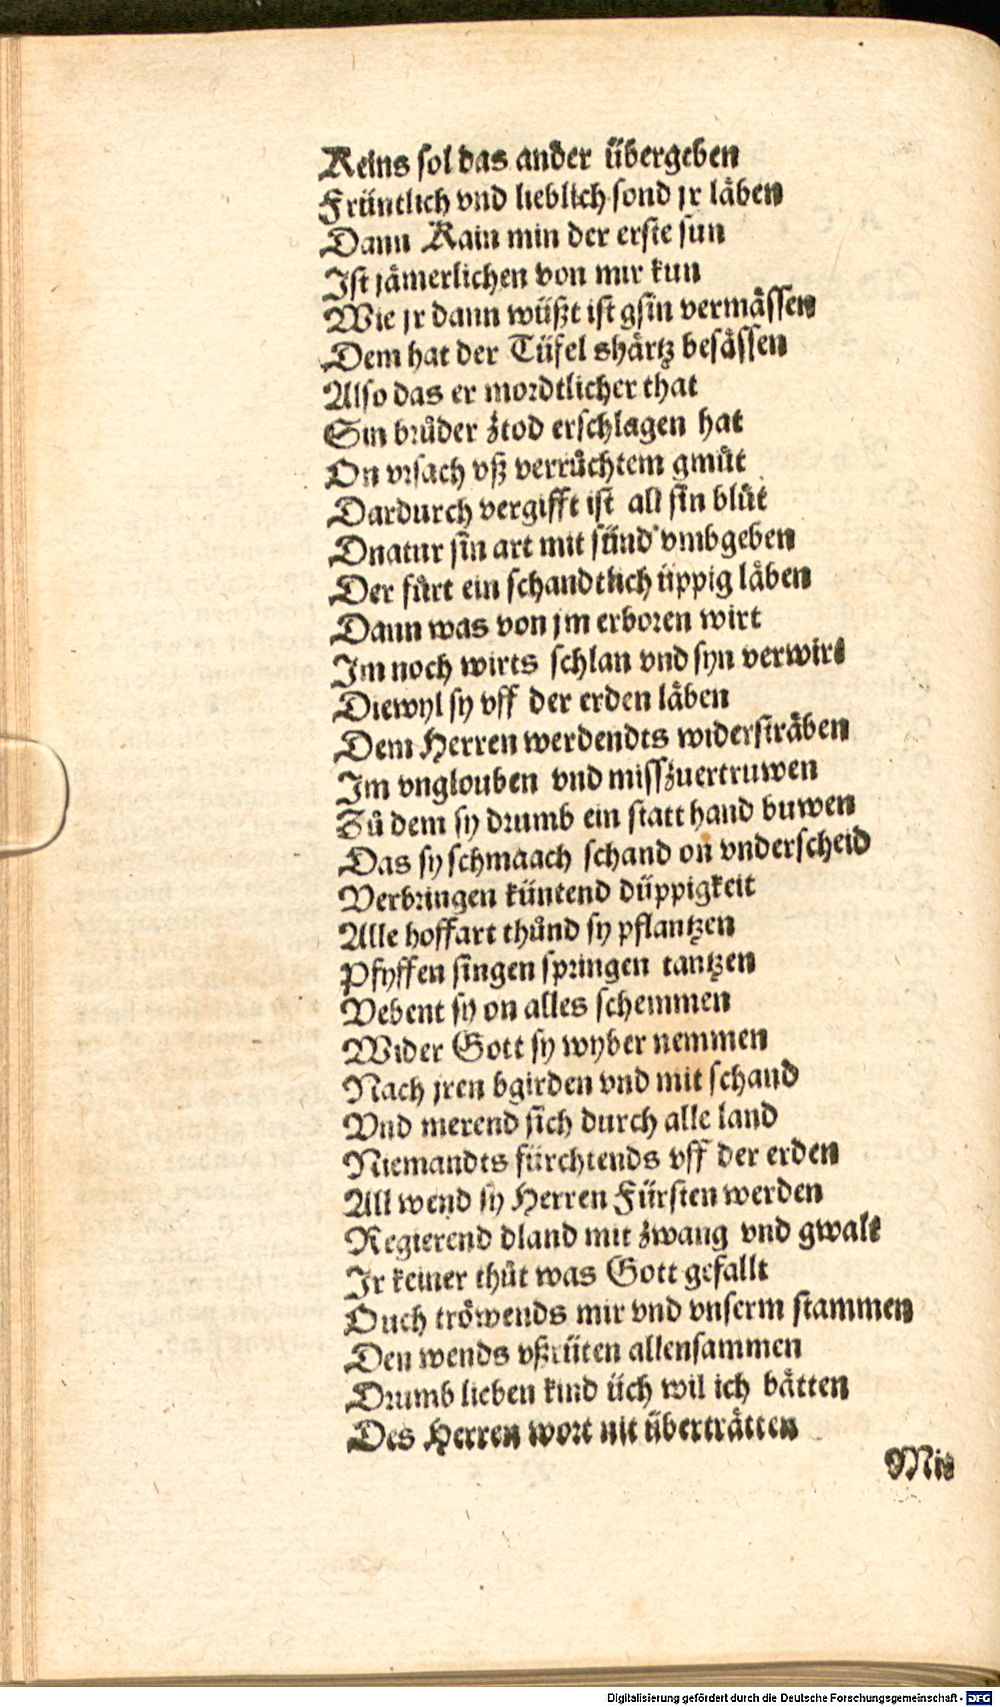 Keins sol das ander übergeben
Früntlich vnd lieblich sond jr läben
Dann Kain min der erste sun
Ist jämerlichen von mir kun
Wie jr dann wüßt ist gsin vermässen
Dem hat der Tüfel shärtz besässen
Also das er mordtlicher that
Sin brůder ztod erschlagen hat
On vrsach vß verrůchtem gmüt
Dardurch vergifft ist all sin blůt
Dnatur sin art mit sünd vmbgeben
Der fürt ein schandtlich üppig läben
Dann was von jm erboren wirt
Im noch wirts schlan vnd syn verwirt
Diewyl sy vff der erden läben
Dem Herren werdendts widersträben
Im vnglouben vnd misszuertruwen
Zů dem sy drumb ein statt hand buwen
Das sy schmaach schand on vnderscheid
Verbringen küntend düppigkeit
Alle hoffart thůnd sy pflantzen
Pfyffen singen springen tantzen
Vebent sy on alles schemmen
Wider Gott sy wyber nemmen
Nach jren bgirden vnd mit schand
Vnd merend sich durch alle land
Niemandts fürchtends vff der erden
All wend sy Herren Fürsten werden
Regierend dland mit zwang vnd gwalt
Ir keiner thůt was Gott gefallt
Ouch tröwends mir vnd vnserm stammen
Den wends vßrüten allensammen
Drumb lieben kind üch wil ich bätten
Des Herren wort nit überträtten
Mis
Digitalisierung gefördert durch die Deutsche Forschungsgemeinschaft - DFG